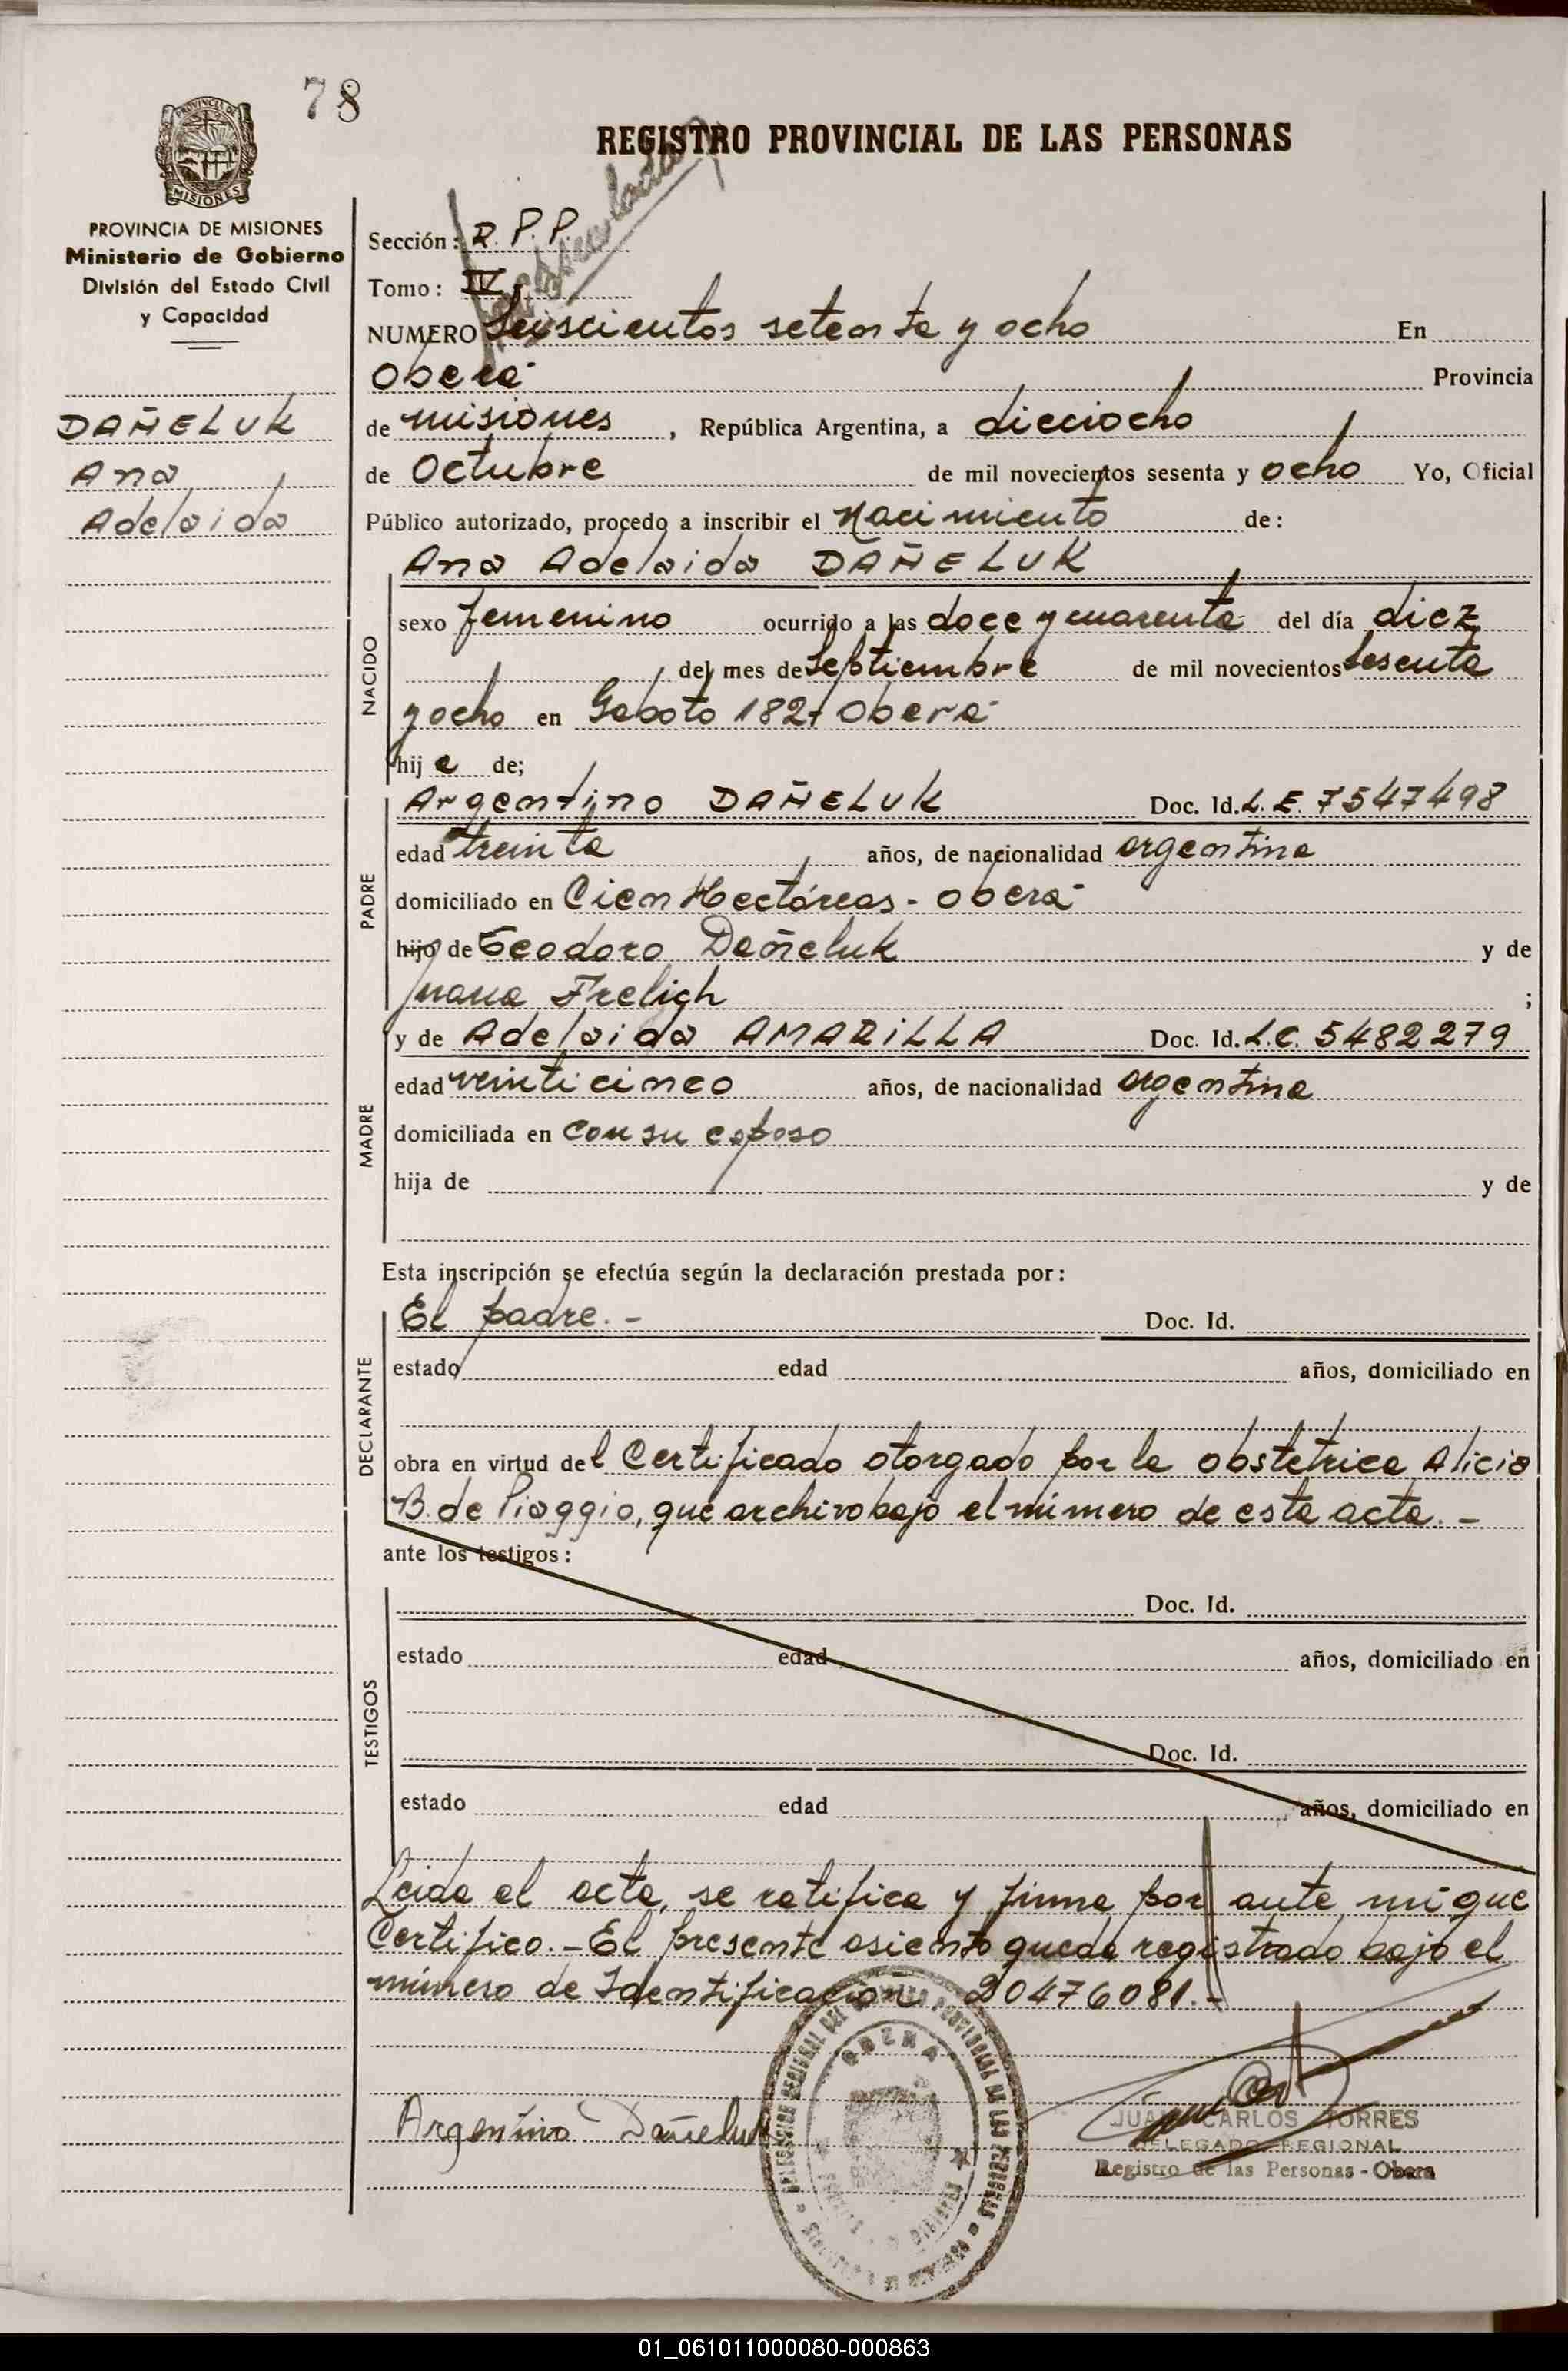 78
REGISTRO PROVINCIAL DE LAS PERSONAS
PROVINCIA DE
MISIONES
PROVINCIA DE MISIONES
Ministerio de Gobierno
División del Estado Civil
y Capacidad
DAÑELUK
Ana
Adelaida
Sección: R. P. P.
Tomo: IV
NUMERO Seiscientos setenta y ocho En
Oberá Provincia
de misiones, República Argentina, a dieciocho
de Octubre de mil novecientos sesenta y ocho Yo, Oficial
Público autorizado, procedo a inscribir el Nacimiento de:
Ana Adelaida DAÑELUK
NACIDO
sexo femenino ocurrido a las doce y cuarenta del día diez
del mes de Septiembre de mil novecientos sesenta
y ocho en Gaboto 182 - Oberá
hij a de;
PADRE
Argentino DAÑELUK Doc. Id. L. E. 7547498
edad treinta años, de nacionalidad argentina
domiciliado en Cien Hectáreas - Oberá
hijo de Teodoro Dañeluk y de
Juana Frelich ;
MADRE
y de Adelaida AMARILLA Doc. Id. L.C. 5482279
edad veinticinco años, de nacionalidad argentina
domiciliada en con su esposo
hija de y de
Esta inscripción se efectúa según la declaración prestada por:
DECLARANTE
El padre. - Doc. Id.
estado edad años, domiciliado en
obra en virtud del Certificado otorgado por la obstetrica Alicia
B. de Piaggio, que archivo bajo el número de esta acta. -
ante los testigos:
TESTIGOS
Doc. Id.
estado edad años, domiciliado en
Doc. Id.
estado edad años, domiciliado en
Leida el acta, se ratifica y firma por ante mi que
Certifico. - El presente asiento queda registrado bajo el
número de Identificación 20476081. -
Argentino Dañeluk
OBERA
JUAN CARLOS TORRES
DELEGADO REGIONAL
Registro de las Personas - Obera
01_061011000080-000863